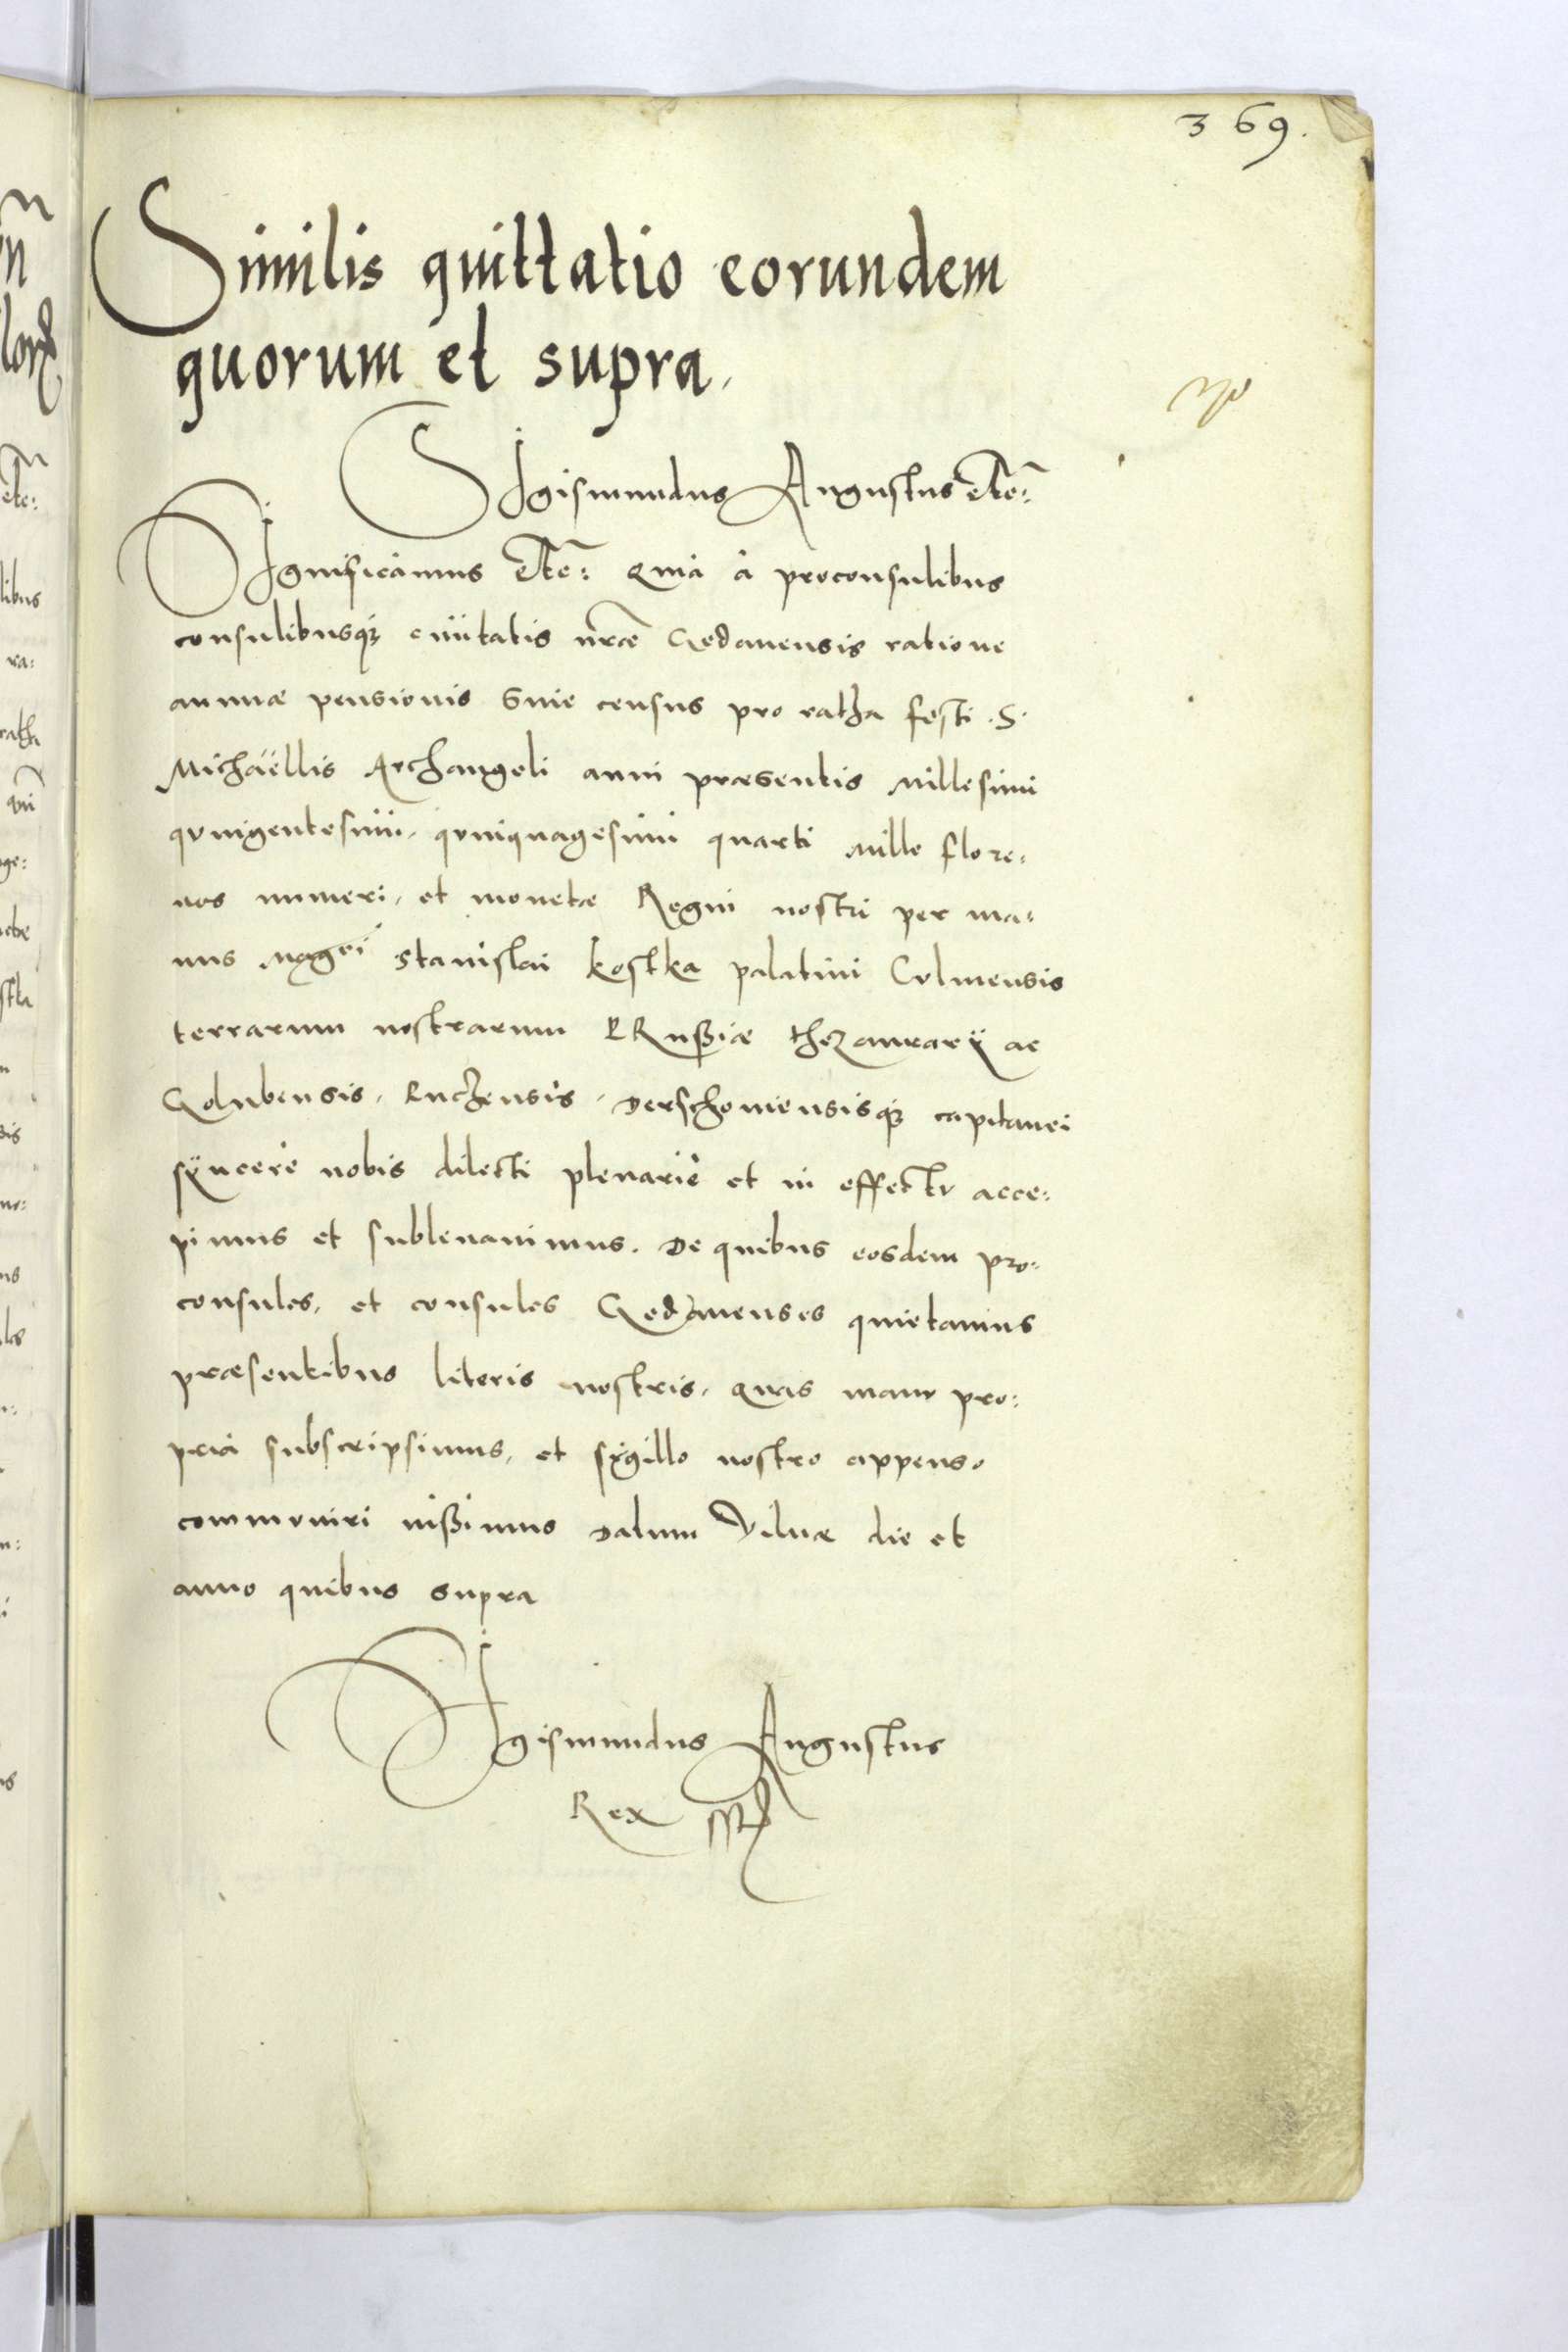 369.
Similis quittatio eorundem
quorum et supra.
SIgismundus Augustus etc:
SIgnificamus etc: quia à proconsulibus
consulibusq; ciuitatis nr̃æ Gedanensis ratione
annuæ pensionis siue census pro ratha festi .S.
Michaëllis Archangeli anni præsentis Millesimi
quingentesimi, quinquagesimi quarti Mille flore:
nos numeri, et monetæ Regni nostri per ma:
nus Magci Stanislai Kostka palatini Culmensis
terrarum nostrarum PRussiæ thezaurarÿ ac
Golubensis, Puczensis, Derschouiensisq; capitanei
sÿncerè nobis dilecti plenariè et in effectu acce:
pimus et subleuauimus. De quibus eosdem pro:
consules, et consules Gedanenses quietamus
præsentibus literis nostris, quas manu pro:
pria subscripsimus, et sÿgillo nostro appenso
communiri iussimus Datum Vilnæ die et
anno quibus supra
SIgismundus Augustus
Rex